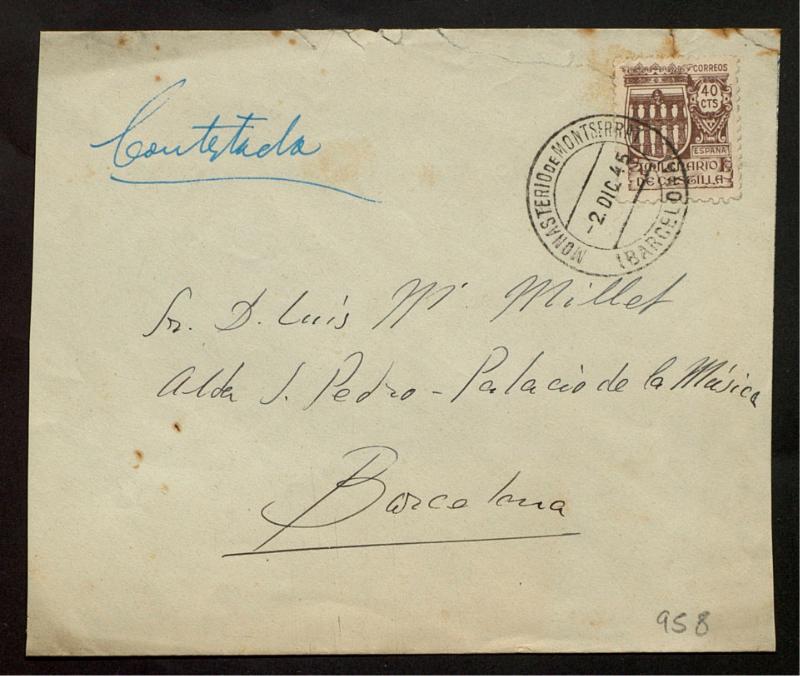 Contestada
CORREOS
40
CTS
ESPAÑA
MILENARIO
DE CASTILLA
MONASTERIO DE MONTSERRAT
-2.DIC.45
(BARCELONA)
Sr. D. Luís Mª Millet
Alda S. Pedro - Palacio de la Música
Barcelona
958